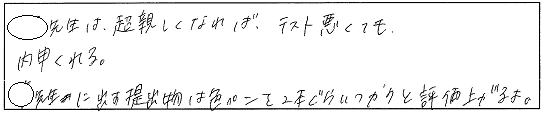 ◯先生は、超親しくなれば、テスト悪くても、
内申くれる。
◯先生に出す提出物は色ペンを2本ぐらいつかうと評価上がるよ。